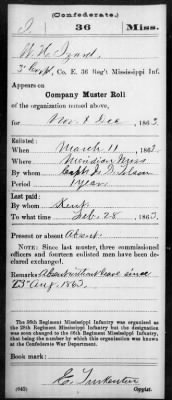 (Confederate.)
I | 36 | Miss.
W H Izard
3 Corp, Co. E, 36 Reg't Mississippi Inf.
Appears on
Company Muster Roll
of the organization named above,
for Nov & Dec, 1863.
Enlisted:
When March 11, 1862.
Where Meridian Miss
By whom Capt J. D.
Period 1 year
Last paid:
By whom Kemp
To what time Feb. 28, 1863.
Present or absent Absent
NOTE: Since last muster, three commissioned
officers and fourteen enlisted men have been
declared exchanged.
Remarks Absent without leave since
23 Aug. 1863.
The 36th Regiment Mississippi Infantry was organized as
the 28th Regiment Mississippi Infantry but the designation
was soon changed to the 36th Regiment Mississippi Infantry,
that being the number by which this organization was known at
the Confederate War Department.
Book mark:
(642)
Copyist.